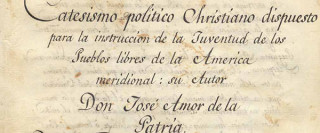 Catesismo politico Christiano dispuesto
para la instruccion de la Juventud de los
Pueblos libres de la America
meridional: su Autor
Don José Amor de la
Patria.